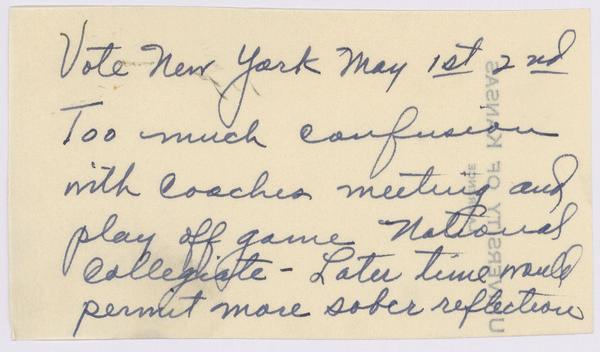 Vote New York May 1st 2nd
Too much confusion
with coaches meeting and
play off game National
Collegiate - Later time would
permit more sober reflection
UNIVERSITY OF KANSAS
LAWRENCE